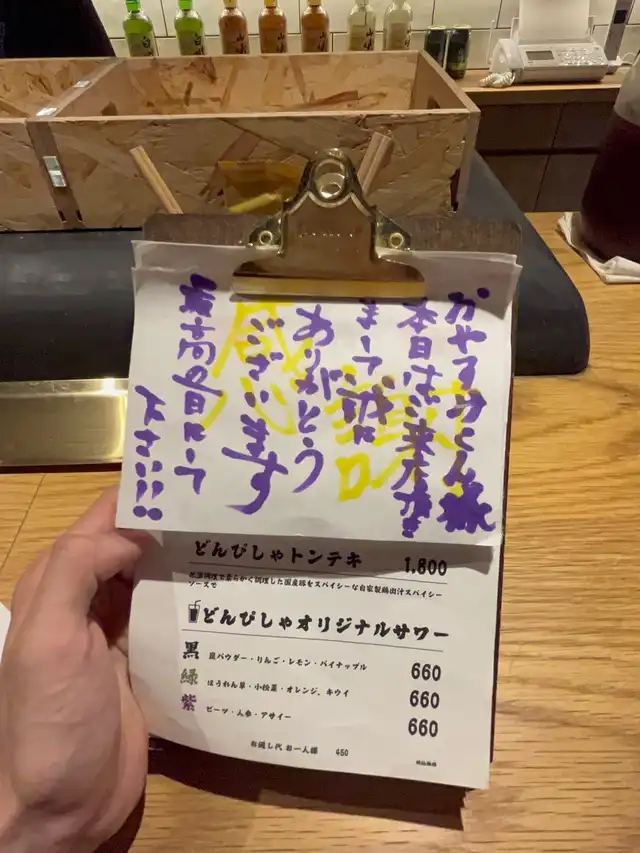 かやすけくん様
本日はご来店頂き
まして、誠に
ありがとう
ございます
最高の日にして
下さい!!
感謝
どんぴしゃトンテキ 1,800
低温調理で柔らかく調理した国産豚をスパイシーな自家製鶏出汁スパイシー
ソースで
どんぴしゃオリジナルサワー
黒 炭パウダー・りんご・レモン・パイナップル 660
緑 ほうれん草・小松菜・オレンジ、キウイ 660
紫 ビーツ・人参・アサイー 660
お通し代 お一人様 450